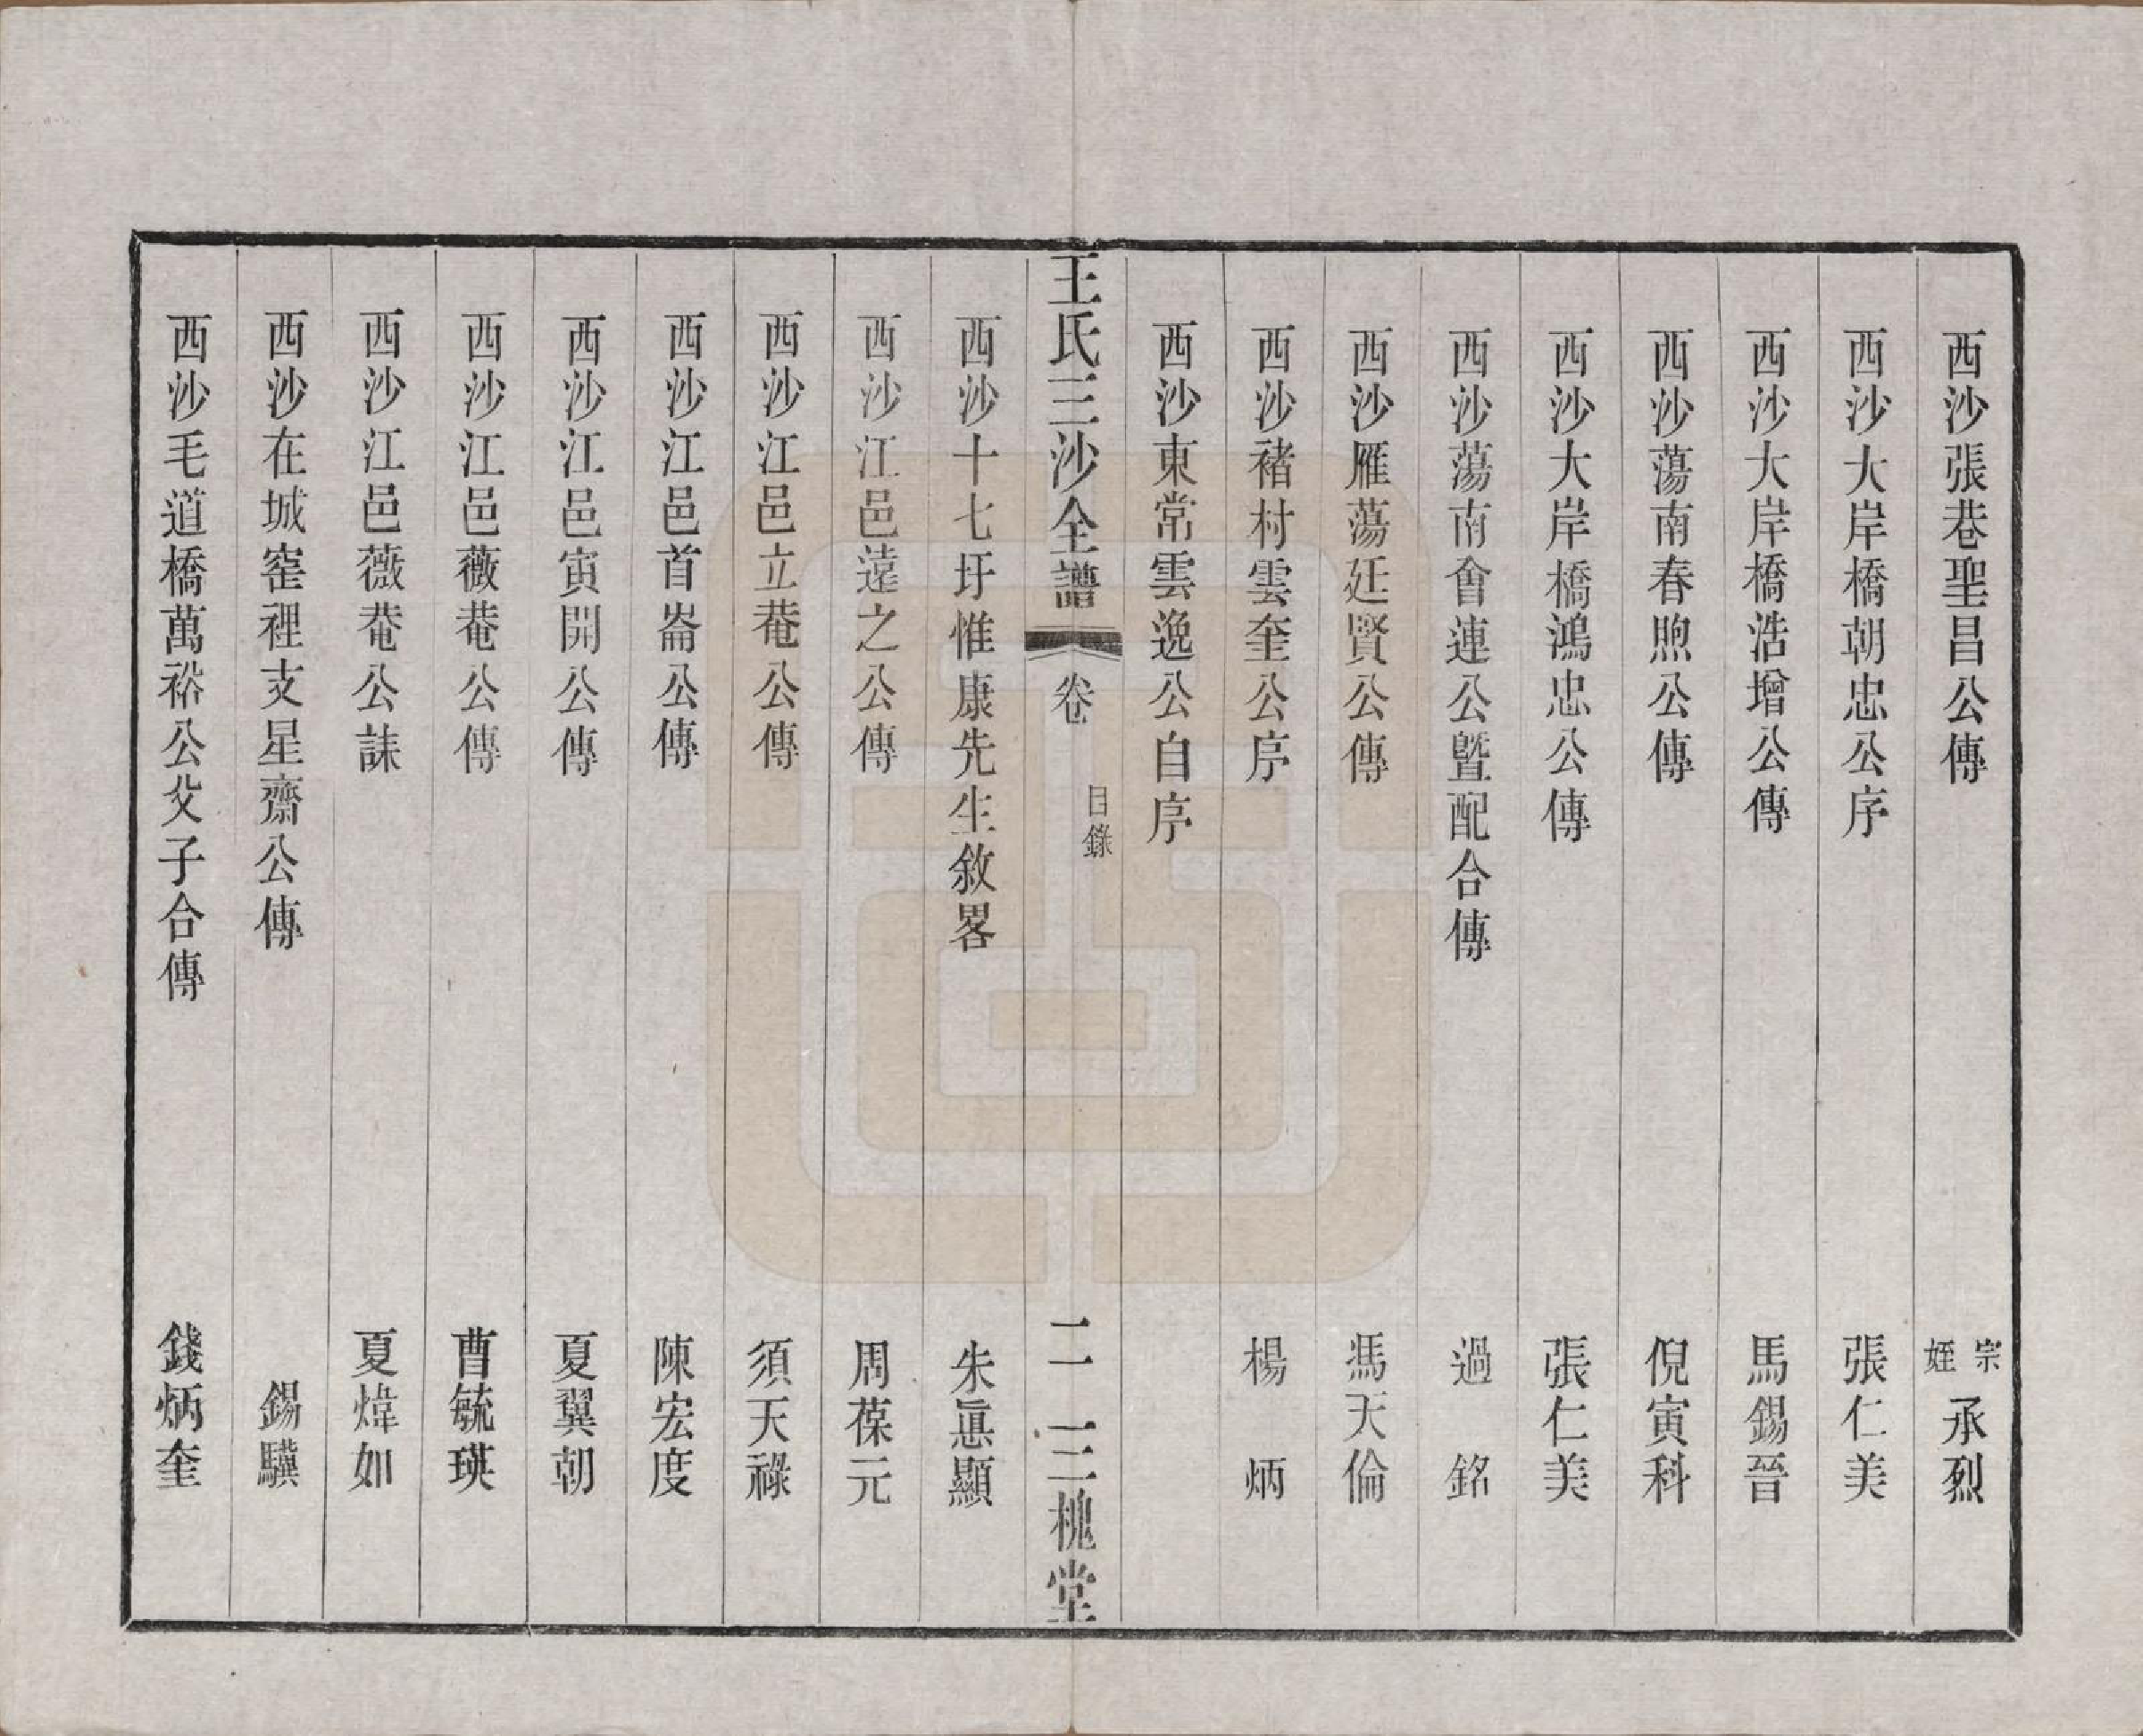 西沙張巷聖昌公傳 宗姪承烈
西沙大岸橋朝忠公序 張仁美
西沙大岸橋浩增公傳 馬錫晉
西沙蕩南春煦公傳 倪寅科
西沙大岸橋鴻忠公傳 張仁美
西沙蕩南會連公暨配合傳 過銘
西沙雁蕩廷賢公傳 馮天倫
西沙褚村雲奎公序 楊炳
西沙東常雲逸公自序
王氏三沙全譜 卷 目錄 二 三槐堂
西沙十七圩惟康先生敘畧 朱惥顯
西沙江邑遠之公傳 周葆元
西沙江邑立菴公傳 須天祿
西沙江邑首崙公傳 陳宏度
西沙江邑寅開公傳 夏翼朝
西沙江邑薇菴公傳 曹毓瑛
西沙江邑薇菴公誄 夏煒如
西沙在城窑裡支星齋公傳 錫驥
西沙毛道橋萬裕公父子合傳 錢炳奎